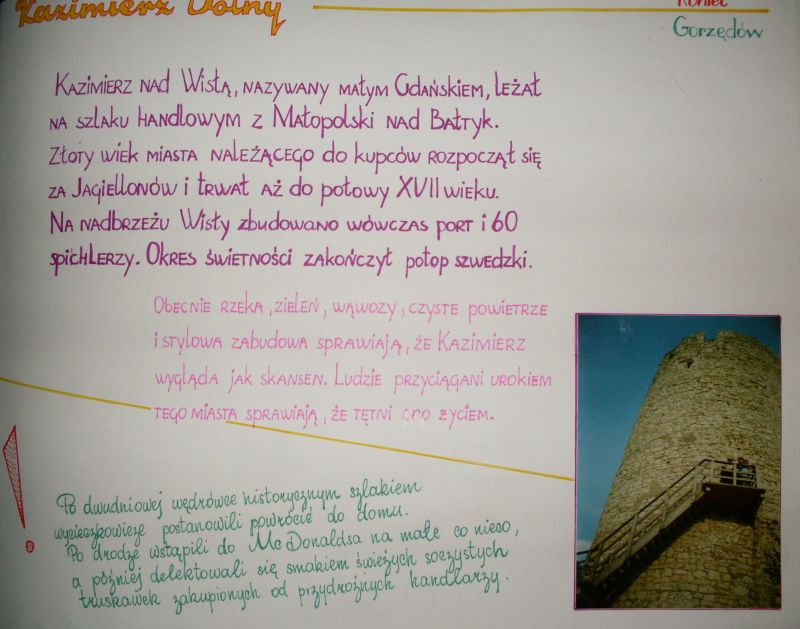 Kazimierz Dolny
Koniec
Gorzędów
KAZIMIERZ NAD WISŁĄ, NAZYWANY MAŁYM GDAŃSKIEM, LEŻAŁ
NA SZLAKU HANDLOWYM Z MAŁOPOLSKI NAD BAŁTYK.
ZŁOTY WIEK MIASTA NALEŻĄCEGO DO KUPCÓW ROZPOCZĄŁ SIĘ
ZA JAGIELLONÓW I TRWAŁ AŻ DO POŁOWY XVII WIEKU.
NA NADBRZEŻU WISŁY ZBUDOWANO WÓWCZAS PORT I 60
SPICHLERZY. OKRES ŚWIETNOŚCI ZAKOŃCZYŁ POTOP SZWEDZKI.
OBECNIE RZEKA, ZIELEŃ, WĄWOZY, CZYSTE POWIETRZE
I STYLOWA ZABUDOWA SPRAWIAJĄ, ŻE KAZIMIERZ
WYGLĄDA JAK SKANSEN. LUDZIE PRZYCIĄGANI UROKIEM
TEGO MIASTA SPRAWIAJĄ, ŻE TĘTNI ONO ŻYCIEM.
!
Po dwudniowej wędrówce historycznym szlakiem
wycieczkowicze postanowili powrócić do domu.
Po drodze wstąpili do McDonaldsa na małe co nieco,
a później delektowali się smakiem świeżych soczystych
truskawek zakupionych od przydrożnych handlarzy.